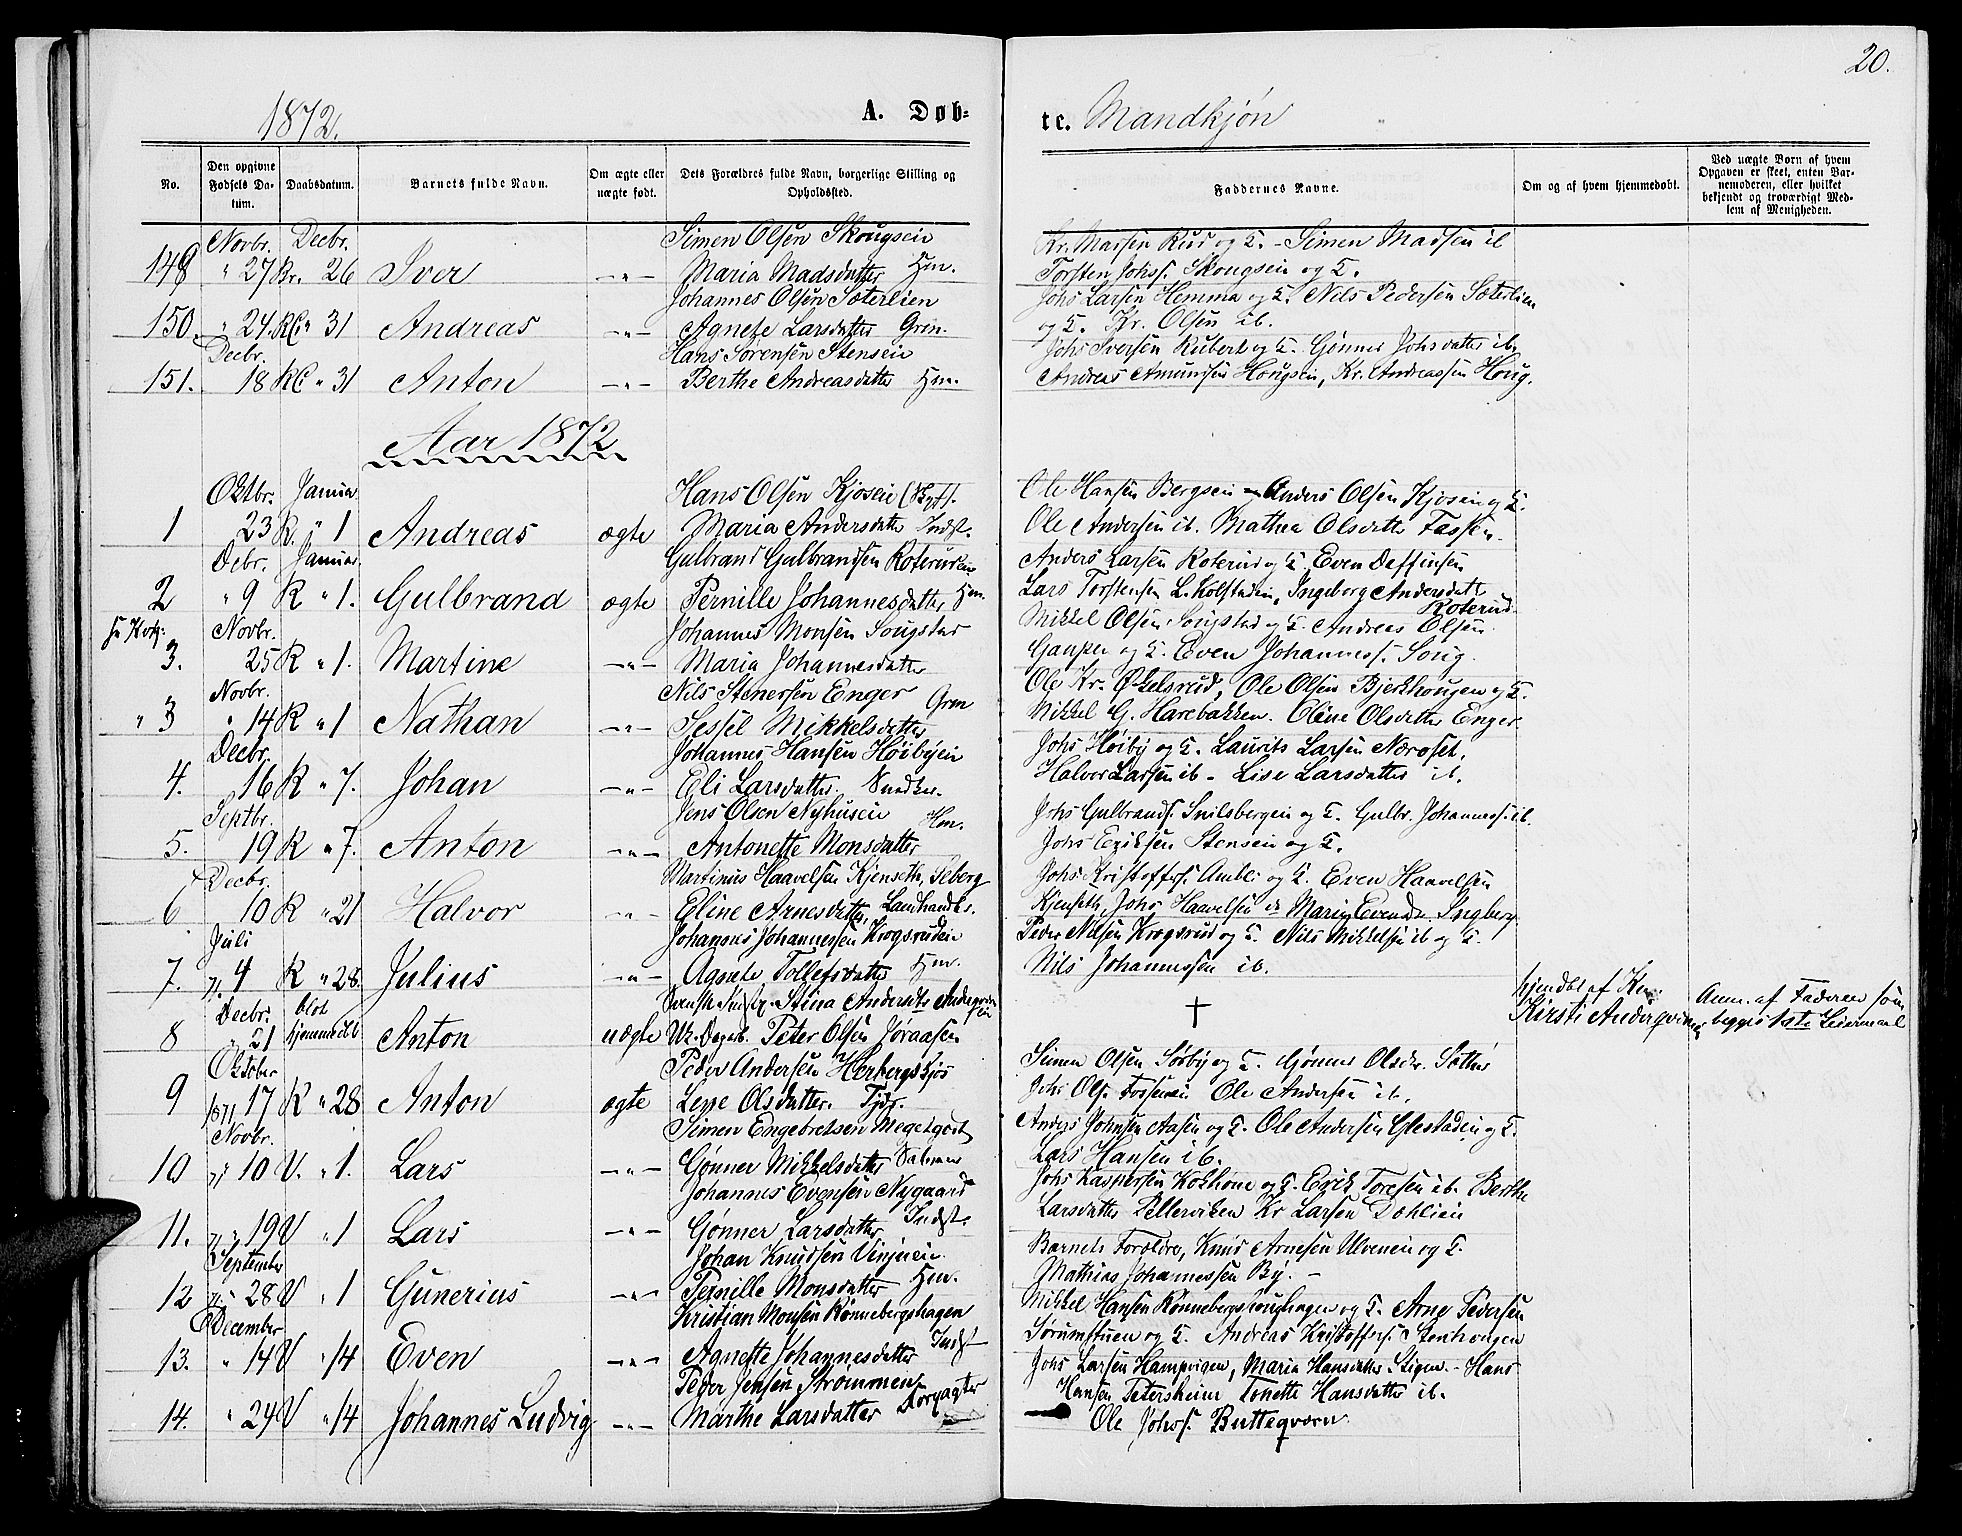 20.
1872.
A. Døb=
te. Mandkjøn
No.
Den opgivne Fødsels Datum.
Daabsdatum.
Barnets fulde Navn.
Om ægte eller uægte født.
Dets Forældres fulde Navn, borgerlige Stilling og Opholdssted.
Faddernes Navne.
Om og af hvem hjemmedøbt.
Ved uægte Born af hvem Opgaven er skeet, enten Barnemoderen, eller hvilket bekjendt og troværdigt Medlem af Menigheden.
Novbr. Decbr. Simen Olsen Skougseie Kr. Marsen Rud og T. - Simen Madsen ib
149 " 27 Br. 26 Iver -"- Maria Madsdatter Hm. Torsten Johs. Skougseie og T.
Johannes Olsen Sæterlien Johs Larsen Hemma og T. Nils Pedersen Sæterlien
150. " 24. RC " 31 Andreas -"- Agnete Larsdatter Grm. og T. Kr. Olsen ib.
Decbr. Hans Sørensen Stenseie Johs Iversen Ruberl og T. Gønner Johsdatter ib.
151. 18 RC " 31 Anton -"- Berthe Andreasdatter Hm. Andreas Amundsen Hougseie, Kr. Andreassen Houg.
Aar 1872
Oktbr. Januar Hans Olsen Kjoseie Ole Hansen Bergseie - Anders Olsen Kjoseie og T.
1 23 R. " 1 Andreas ægte Maria Andersdatter Indst. Ole Andersen ib. Mathea Olsdatter Fassen.
Debr. Januar Gulbrand Gulbrandsen Roterudeie Anders Larsen Roterud og T. Even Deffinsen
2 " 9 R " 1. Gulbrand ægte Pernille Johannesdatter Hm. Lars Torstensen L. Kolstadeie, Ingeborg Andersdatt Roterud
Novbr. Johannes Monsen Sougstad Mikkel Olsen Sougstad og T. Andreas Olsen
3. 25 R " 1. Martine -"- Maria Johannesdatter Gaupen og T. Even Johanness. Soug.
Novbr. Nils Stenersen Enger Grm Ole Kr. Økelsrud, Ole Olsen Bjerkhougen og T.
" 3 " 14 R " 1 Nathan -"- Sessil Mikkelsdatter Mikkel G. Harebakken. Oline Olsdatter Enger.
Decbr. Johannes Hansen Høibyeie Johs Høiby og T. Laurits Larsen Næroset.
4. 16 R " 7. Johan -"- Eli Larsdatter. Snedker. Halvor Larsen ib - Lise Larsdatter ib.
Septbr. Jens Olsen Nyhuseie Hm. Johs Gulbrands. Snilsbergeie og T. Gulbr. Johanness. ib.
5. 19 R " 7. Anton -"- Antonette Monsdatter Johs Eriksen Stenseie og T.
Decbr. Martinus Haavelsen Kjenseth, Seberg Johs Kristoffers. Amble og T. Even Haavelsen
6 10 R " 21 Halvor -"- Eline Arnesdatter, Landhandl. Kjenseth, Johs Haavelsen ib Marie Evensdr. Engberg
Juli Johannes Johannessen Krogsrudeie Peder Nilsen Krogsrud og T. Nils Mikkelsen ib og T.
7. 71. 4 R " 28. Julius -"- Agnete Tollefsdatter Hm. Nils Johannessen ib.
Decbr. blot Stina Andersdtr. †
8 " 21 hjemmedøbt Anton uægte Uk. Dagarb. Peter Olsen Joraasen hjemdbt af Kirsti Anderqvinne Anm. af Faderen som begges 1ste Leiermaal
Oktober Peder Andersen Herbergskjos Simen Olsen Sørby og T. Gønner Olsdr. Sæther
9 1871 17 R " 28 Anton ægte Lene Olsdatter. Tjdr. Johs Ols. Fosseneie Ole Andersen ib.
Novbr. Simen Engebretsen Megetgodt Anders Johnsen Aasen og T. Ole Andersen Glestadeie og T.
10 71 10 V. " 1. Lars -"- Gønner Mikkelsdatter Lars Hansen ib.
Johannes Evensen Nygaard Johs Kaspersen Koklone og T. Erik Toresen ib. Berthe
11. 71 " 19 V " 1 Lars -"- Gønner Larsdatter Indst. Larsdatter Pellerviken Kr Larsen Dahlieie
September Johan Knudsen Vinjueie Barnets Forældre, Knud Arnesen Ulveneie og T.
12 71 28 V " 1 Gunerius -"- Pernille Monsdatter Hm. Mathias Johannessen By. -
December Kristian Monsen Rønnebergshagen Mikkel Hansen Rønnebergshoughagen og T. Arne Pedersen
13. " 14 V " 14 Even -"- Agnette Johannesdatter Indst Sørumstuen og T. Andreas Kristoffers. Stenhougen
Peder Jensen Strømmen Johs Larsen Hampvigen, Maria Hansdatter Stigen. - Hans
14. " 24 V " 14 Johannes Ludvig -"- Marthe Larsdatter Forpagter Hansen Petersheim Tonette Hansdatter ib.
Ole Johs. Butteqvern